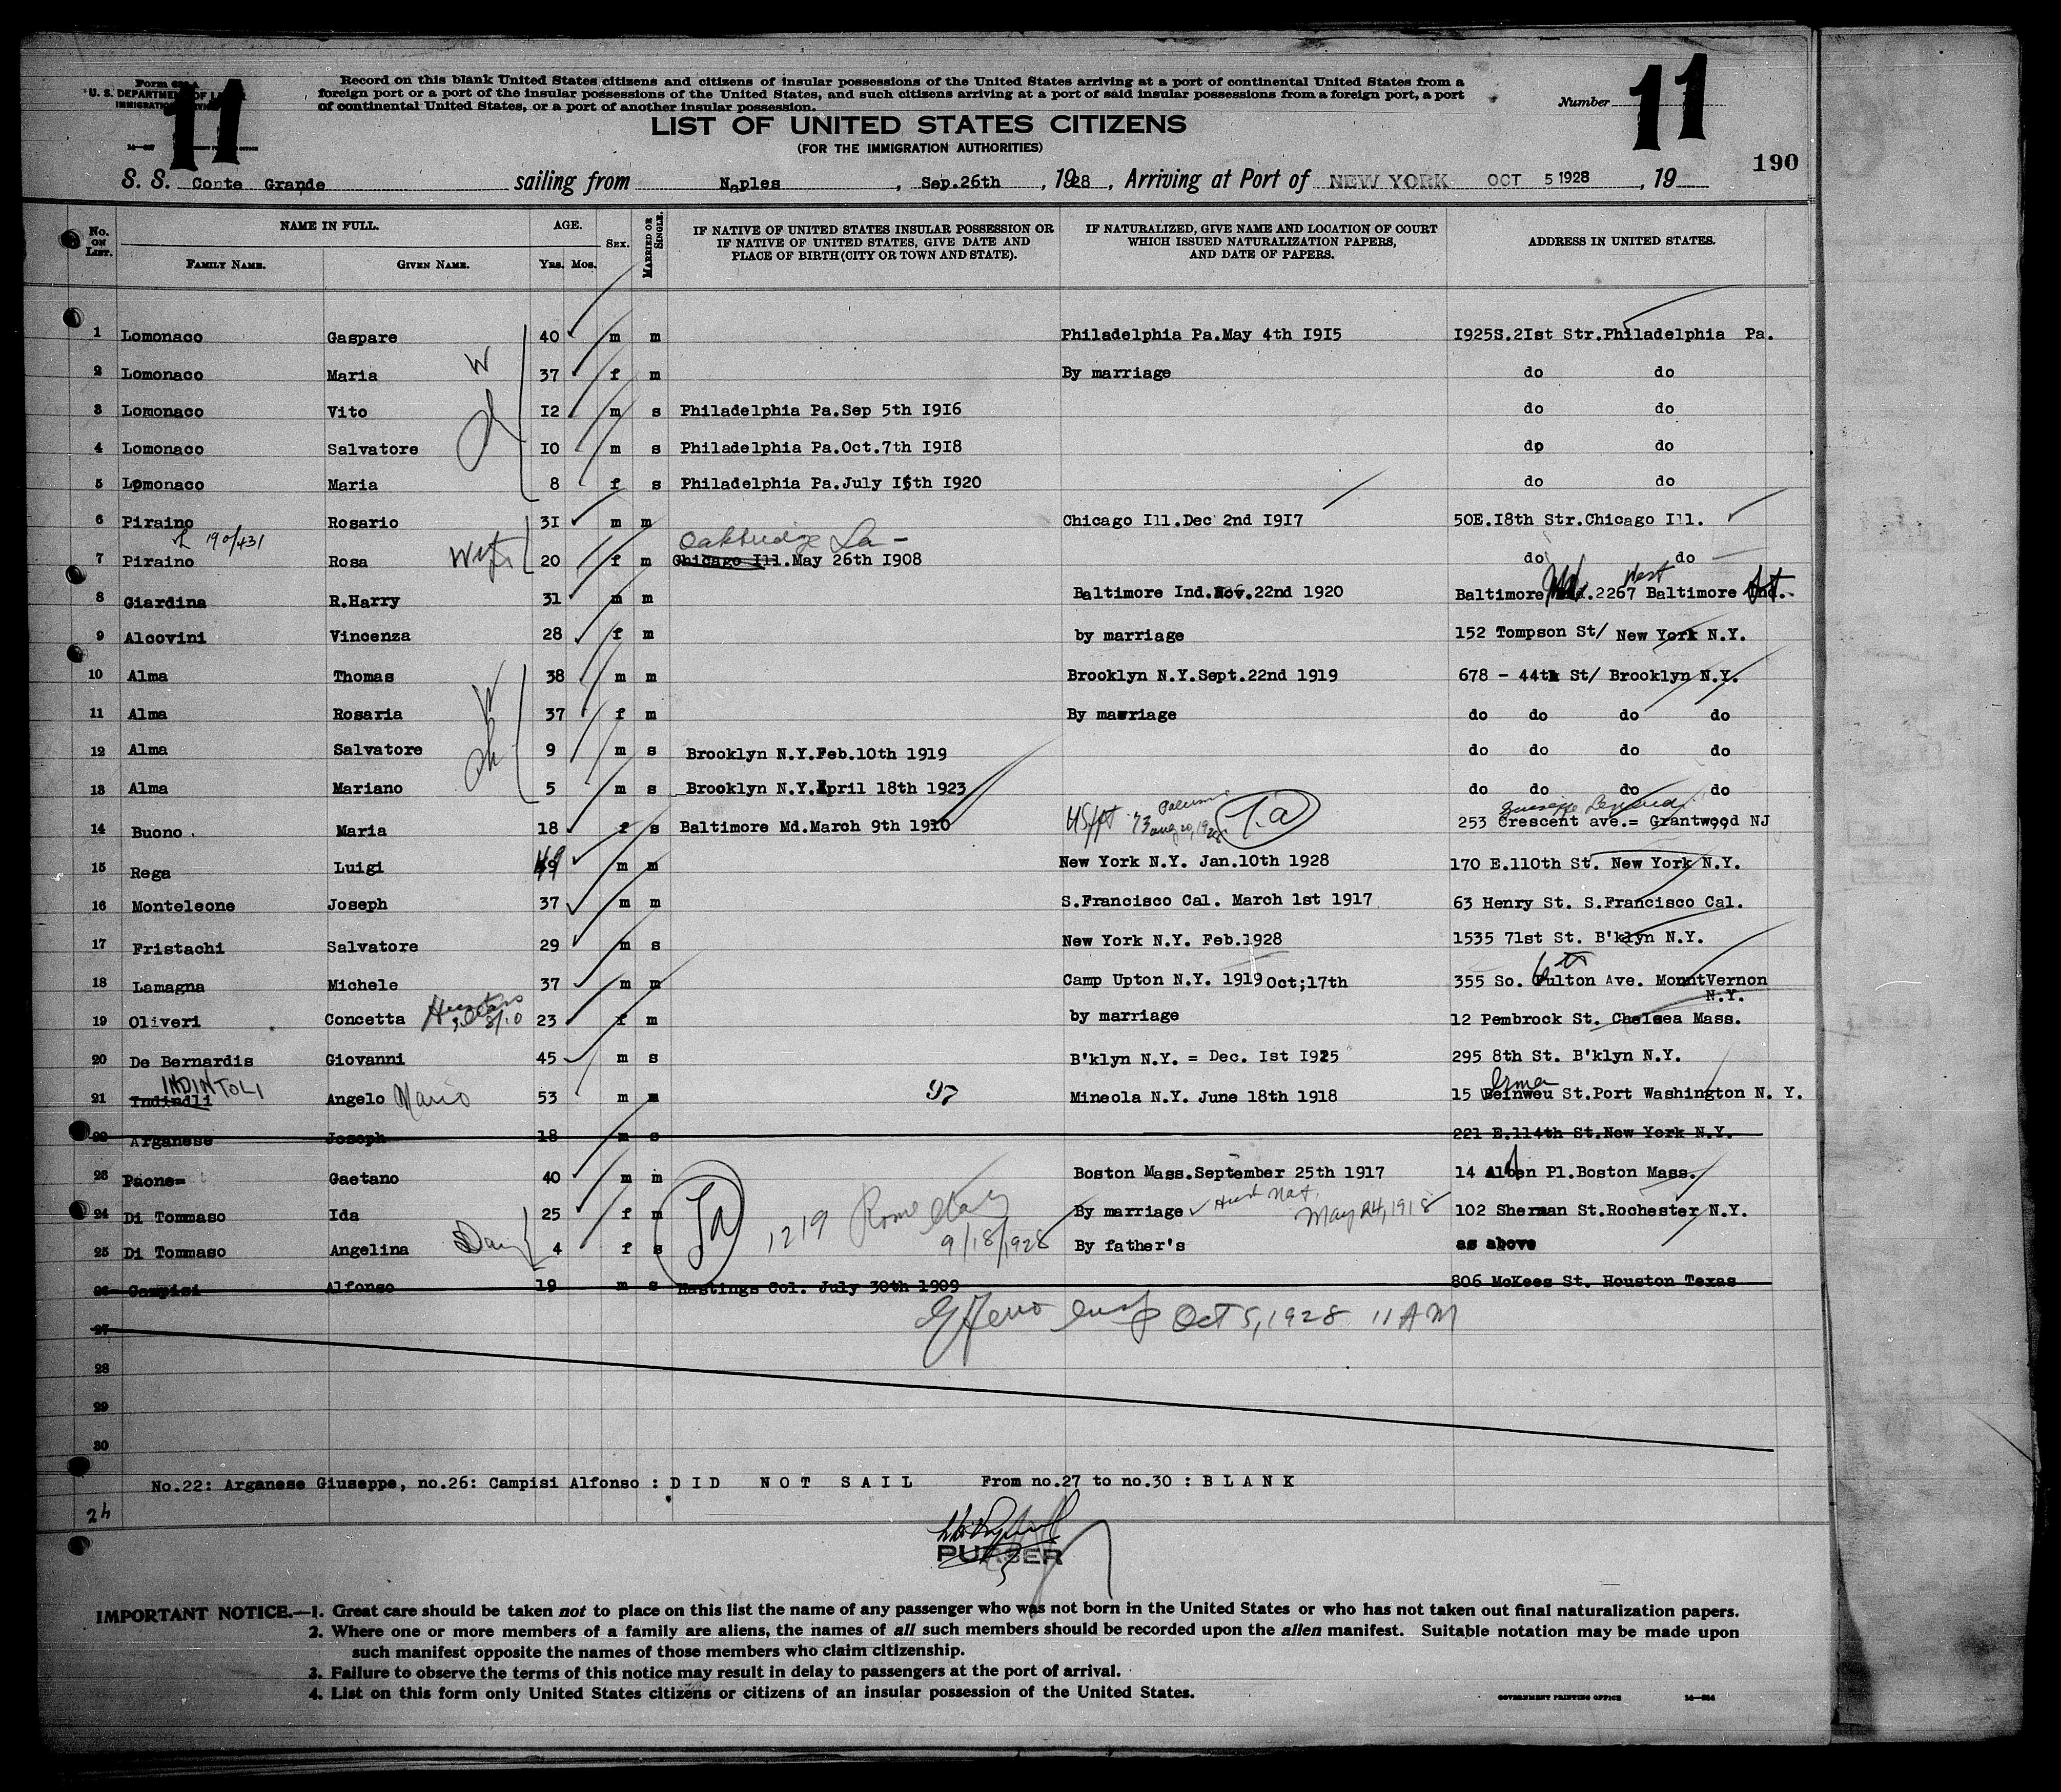 Form
U. S. DEPARTMENT OF LABOR
IMMIGRATION SERVICE
11
Record on this blank United States citizens and citizens of insular possessions of the United States arriving at a port of continental United States from a
foreign port or a port of the insular possessions of the United States, and such citizens arriving at a port of said insular possessions from a foreign port, a port
of continental United States, or a port of another insular possession.
Number 11
LIST OF UNITED STATES CITIZENS
(FOR THE IMMIGRATION AUTHORITIES)
190
S. S. Conte Grande sailing from Naples, Sep.26th, 1928, Arriving at Port of NEW YORK OCT 5 1928, 19
No. ON LIST. NAME IN FULL. FAMILY NAME. GIVEN NAME. AGE. YRS. MOS. SEX. MARRIED OR SINGLE. IF NATIVE OF UNITED STATES INSULAR POSSESSION OR IF NATIVE OF UNITED STATES, GIVE DATE AND PLACE OF BIRTH (CITY OR TOWN AND STATE). IF NATURALIZED, GIVE NAME AND LOCATION OF COURT WHICH ISSUED NATURALIZATION PAPERS, AND DATE OF PAPERS. ADDRESS IN UNITED STATES.
1 Lomonaco Gaspare 40 m m Philadelphia Pa.May 4th I9I5 I925S.2Ist Str.Philadelphia Pa.
W
2 Lomonaco Maria 37 f m By marriage do do
3 Lomonaco Vito I2 m s Philadelphia Pa.Sep 5th I9I6 do do
4 Lomonaco Salvatore I0 m s Philadelphia Pa.Oct.7th I9I8 do do
5 Lomonaco Maria 8 f s Philadelphia Pa.July I6th I920 do do
6 Piraino Rosario 3I m m Chicago Ill.Dec 2nd I9I7 50E.I8th Str.Chicago Ill.
190/431 Oakbridge La -
7 Piraino Rosa Wife 20 f m Chicago Ill.May 26th I908 do do
8 Giardina R.Harry 31 m m Baltimore Ind.Nov.22nd 1920 Baltimore Md.2267 West Baltimore St.
9 Alcovini Vincenza 28 f m by marriage 152 Tompson St/ New York N.Y.
10 Alma Thomas 38 m m Brooklyn N.Y.Sept.22nd 1919 678 - 44th St/ Brooklyn N.Y.
W
11 Alma Rosaria 37 f m By marriage do do do do
12 Alma Salvatore 9 m s Brooklyn N.Y.Feb.10th 1919 do do do do
ch
13 Alma Mariano 5 m s Brooklyn N.Y.April 18th 1923 do do do do
14 Buono Maria 18 f s Baltimore Md.March 9th 1910 73 Aug 20, 1928 253 Crescent ave.= Grantwood NJ
15 Rega Luigi 49 m m New York N.Y. Jan.10th 1928 170 E.110th St. New York N.Y.
16 Monteleone Joseph 37 m m S.Francisco Cal. March 1st 1917 63 Henry St. S.Francisco Cal.
17 Fristachi Salvatore 29 m s New York N.Y. Feb.1928 1535 71st St. B'klyn N.Y.
6th
18 Lamagna Michele 37 m m Camp Upton N.Y. 1919 Oct;17th 355 So. Fulton Ave. MountVernon
N.Y.
19 Oliveri Concetta 23 f m by marriage 12 Pembrock St. Chelsea Mass.
20 De Bernardis Giovanni 45 m s B'klyn N.Y. = Dec. Ist I925 295 8th St. B'klyn N.Y.
INDINTOLI
21 Indindli Angelo Mario 53 m m Mineola N.Y. June 18th 1918 15 Beinweu St.Port Washington N. Y.
22 Arganese Joseph 18 m s 221 E.114th St.New York N.Y.
23 Paone= Gaetano 40 m m Boston Mass.September 25th 1917 14 Alben Pl.Boston Mass.
24 Di Tommaso Ida 25 f m 1219 Rome Italy By marriage Husb Nat. May 24, 1918 102 Sherman St.Rochester N.Y.
25 Di Tommaso Angelina Dau 4 f s 9/18/1928 By father's as above
26 Campisi Alfonso 19 m s Hastings Col. July 30th 1909 806 McKees St. Houston Texas
Insp Oct 5, 1928 11 AM
27
28
29
30
No.22: Arganese Giuseppe, no.26: Campisi Alfonso : D I D N O T S A I L From no.27 to no.30 : B L A N K
24
PURSER
IMPORTANT NOTICE.—1. Great care should be taken not to place on this list the name of any passenger who was not born in the United States or who has not taken out final naturalization papers.
2. Where one or more members of a family are aliens, the names of all such members should be recorded upon the alien manifest. Suitable notation may be made upon
such manifest opposite the names of those members who claim citizenship.
3. Failure to observe the terms of this notice may result in delay to passengers at the port of arrival.
4. List on this form only United States citizens or citizens of an insular possession of the United States.
GOVERNMENT PRINTING OFFICE